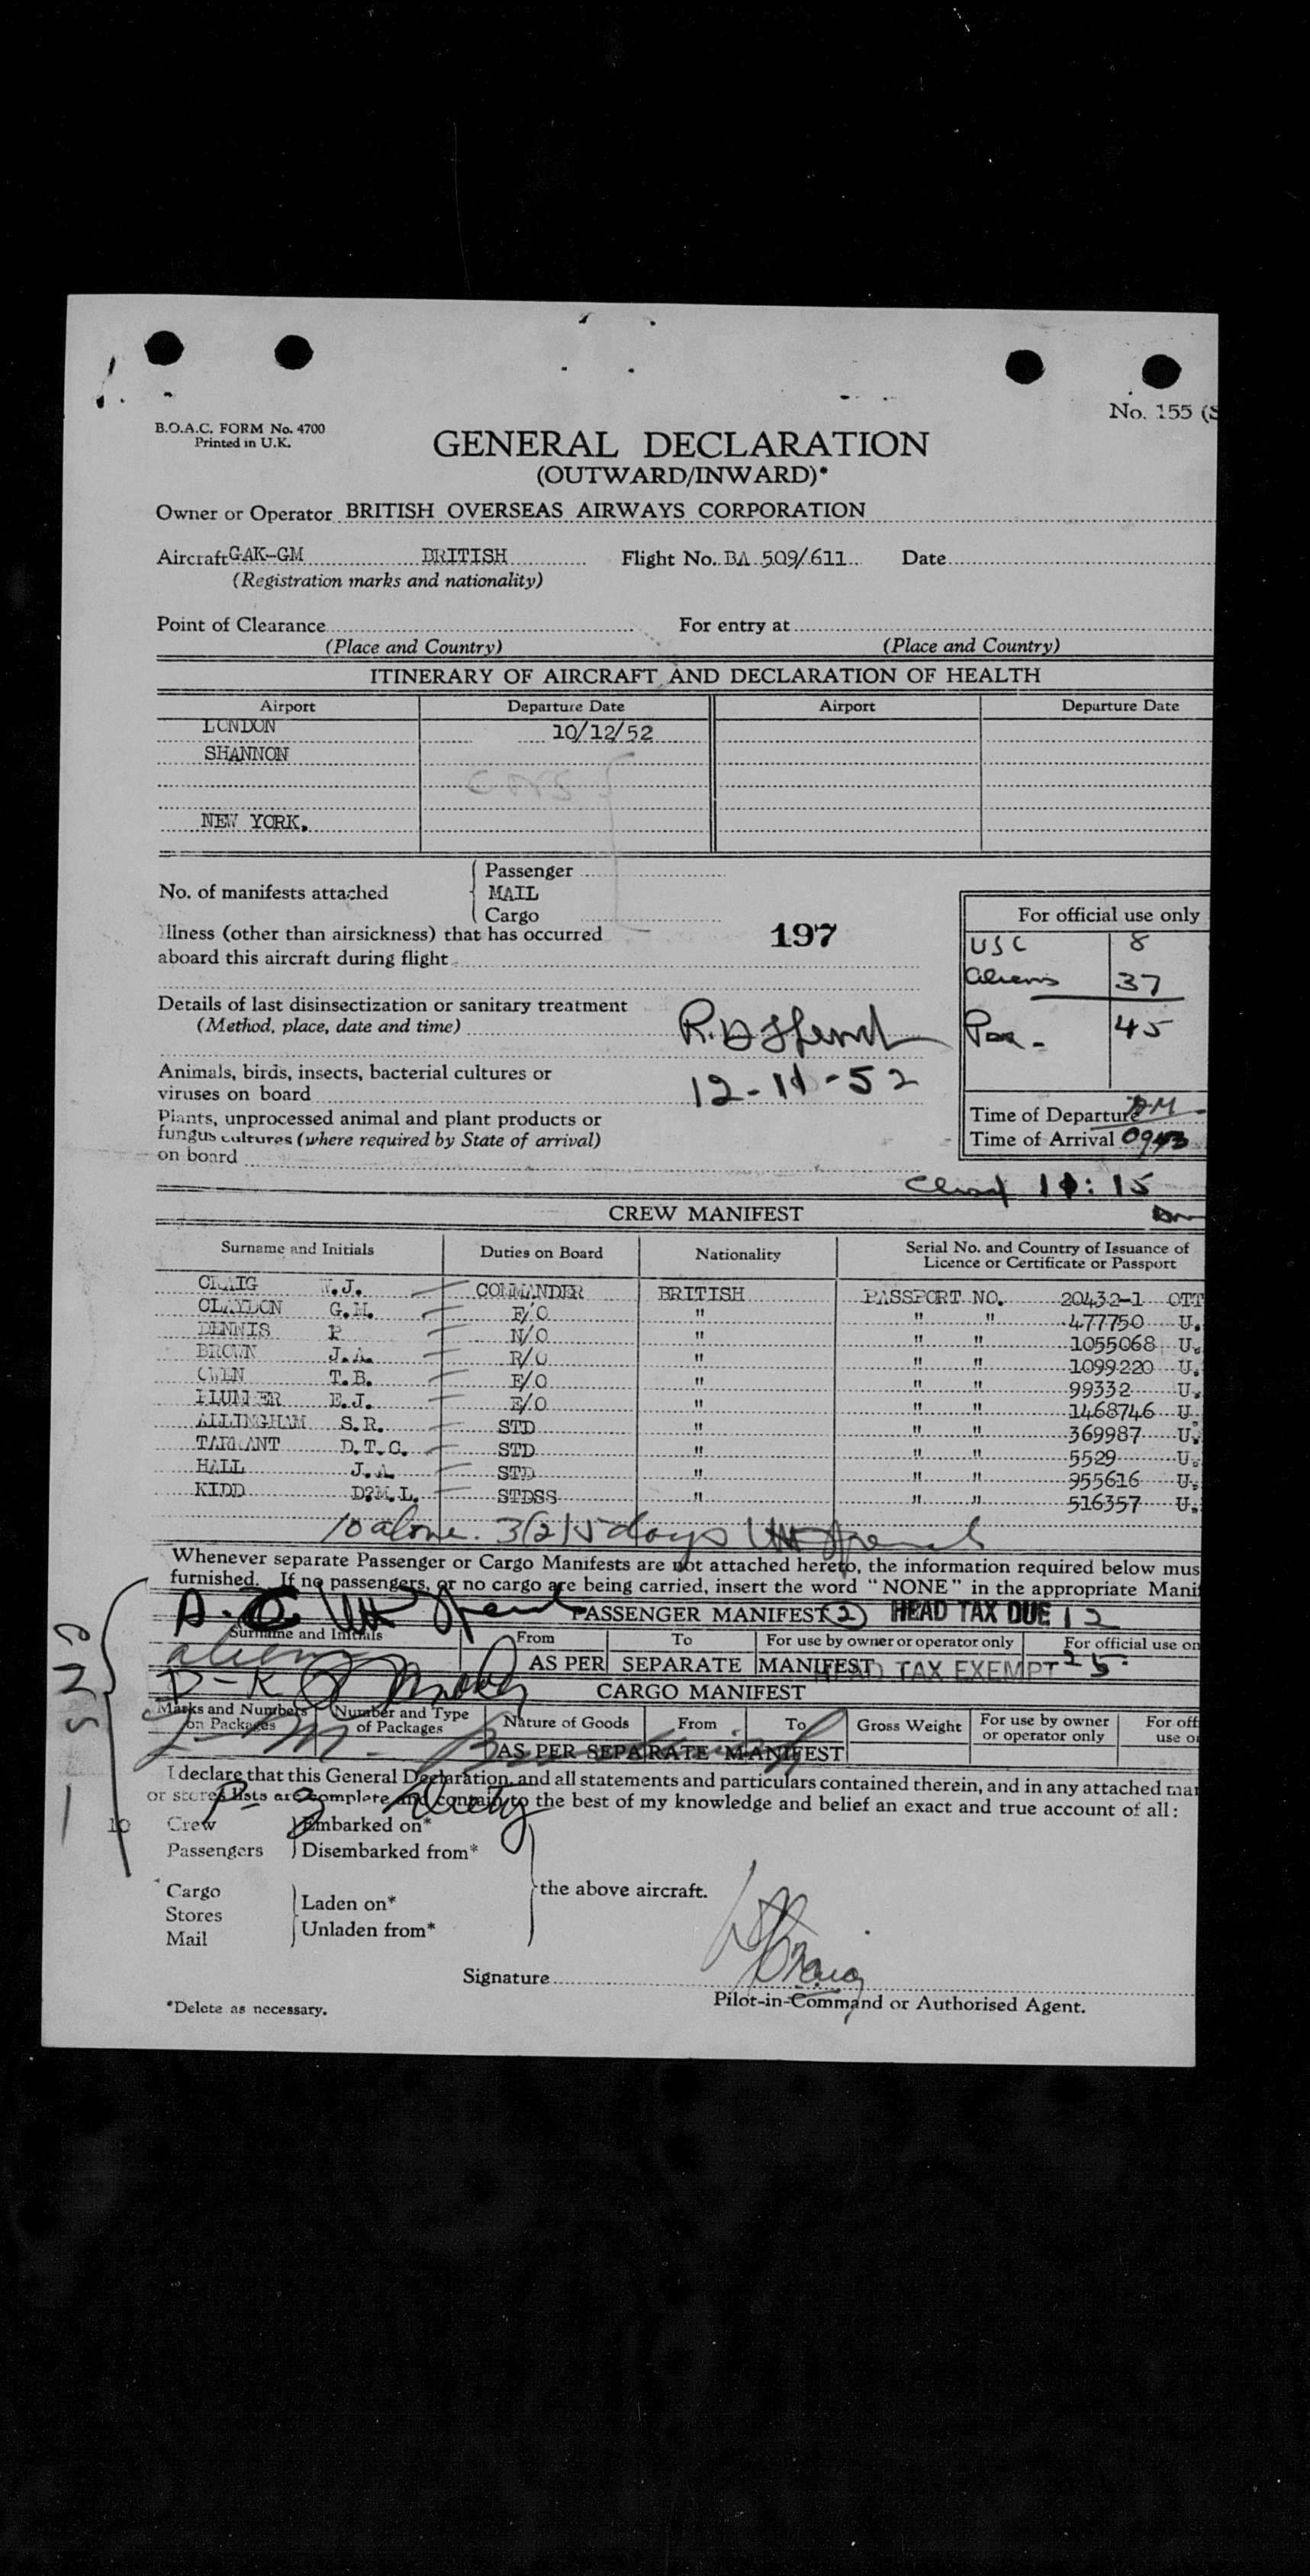 No. 155 (S
B.O.A.C. FORM No. 4700
Printed in U.K.
GENERAL DECLARATION
(OUTWARD/INWARD)*
Owner or Operator BRITISH OVERSEAS AIRWAYS CORPORATION
Aircraft GAK-GM BRITISH Flight No. BA 509/611 Date
(Registration marks and nationality)
Point of Clearance For entry at
(Place and Country) (Place and Country)
ITINERARY OF AIRCRAFT AND DECLARATION OF HEALTH
Airport Departure Date Airport Departure Date
LONDON 10/12/52
SHANNON
NEW YORK.
Passenger
No. of manifests attached MAIL
Cargo
For official use only
Illness (other than airsickness) that has occurred 197
aboard this aircraft during flight
USC 8
aliens 37
Details of last disinsectization or sanitary treatment
(Method, place, date and time)
Pax - 45
Animals, birds, insects, bacterial cultures or
viruses on board 12-11-52
Plants, unprocessed animal and plant products or
fungus cultures (where required by State of arrival)
on board
Time of Departure
Time of Arrival
11:15
CREW MANIFEST
Surname and Initials Duties on Board Nationality Serial No. and Country of Issuance of
Licence or Certificate or Passport
CRAIG W.J. COMMANDER BRITISH PASSPORT NO. 20432-1 OTT
CLAYDON G.M. F/O " " " 477750 U.
DENNIS P N/O " " " 1055068 U.
BROWN J.A. R/O " " " 1099220 U.
OWEN T.B. E/O " " " 99332 U.
PLUMMER E.J. E/O " " " 1468746 U.
ALLINGHAM S.R. STD " " " 369987 U.
TARRANT D.T.C. STD " " " 5529 U.
HALL J.A. STD " " " 955616 U.
KIDD D?M.L. STDSS " " " 516357 U.
10 alone. 3(2)15 days
Whenever separate Passenger or Cargo Manifests are not attached hereto, the information required below mus
furnished. If no passengers, or no cargo are being carried, insert the word "NONE" in the appropriate Mani
PASSENGER MANIFEST (2) HEAD TAX DUE 12
Surname and Initials From To For use by owner or operator only For official use on
AS PER SEPARATE MANIFEST HEAD TAX EXEMPT 25
aliens
D-K
CARGO MANIFEST
Marks and Numbers on Packages Number and Type of Packages Nature of Goods From To Gross Weight For use by owner or operator only For off use o
AS PER SEPARATE MANIFEST
I declare that this General Declaration, and all statements and particulars contained therein, and in any attached ma
or stores lists are complete and contain to the best of my knowledge and belief an exact and true account of all:
Crew Embarked on*
Passengers Disembarked from*
Cargo
Stores Laden on*
Mail Unladen from*
the above aircraft.
Signature WJCraig
Pilot-in-Command or Authorised Agent.
*Delete as necessary.